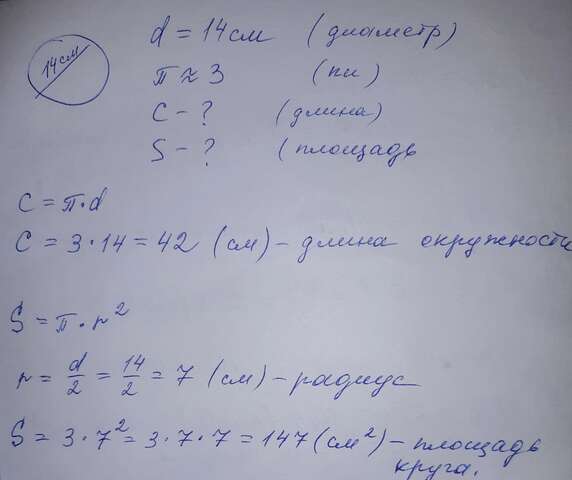 14см
d = 14см (диаметр)
π ≈ 3 (пи)
C - ? (длина)
S - ? (площадь
C = π · d
C = 3 · 14 = 42 (см) - длина окружности
S = π · r²
r = d/2 = 14/2 = 7 (см) - радиус
S = 3 · 7² = 3 · 7 · 7 = 147 (см²) - площадь
круга.